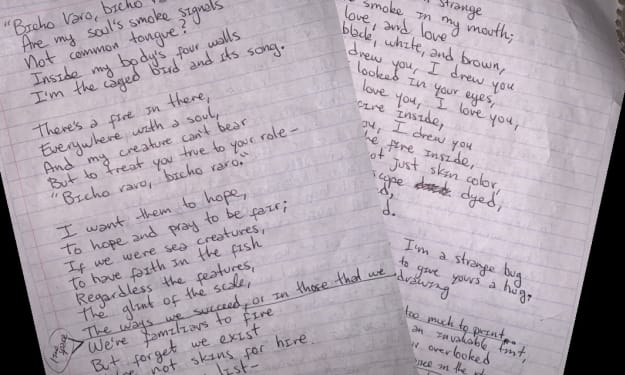 "Bicho raro, bicho
Are my soul's smoke signals
Not common tongue?
Inside my body's four walls
I'm the caged bird and its song.
There's a fire in there,
Everywhere with a soul,
And my creature can't bear
But to treat you true to your role—
"Bicho raro, bicho raro."
I want them to hope,
To hope and pray to be fair;
If we were sea creatures,
To have faith in the fish
Regardless the features,
The glint of the scale,
The ways we succeed, or in those that we
We're familiars to fire
But forget we exist
not skins for hire
list—
strange
smoke in my mouth;
love, and love
black, white, and brown,
drew you, I drew you
looked in your eyes,
love you, I love you,
inside,
I drew you
fire inside,
just skin color,
dyed,
I'm a strange bug
to give yours a hug.
drawing
too much to print
an invaluable
overlooked